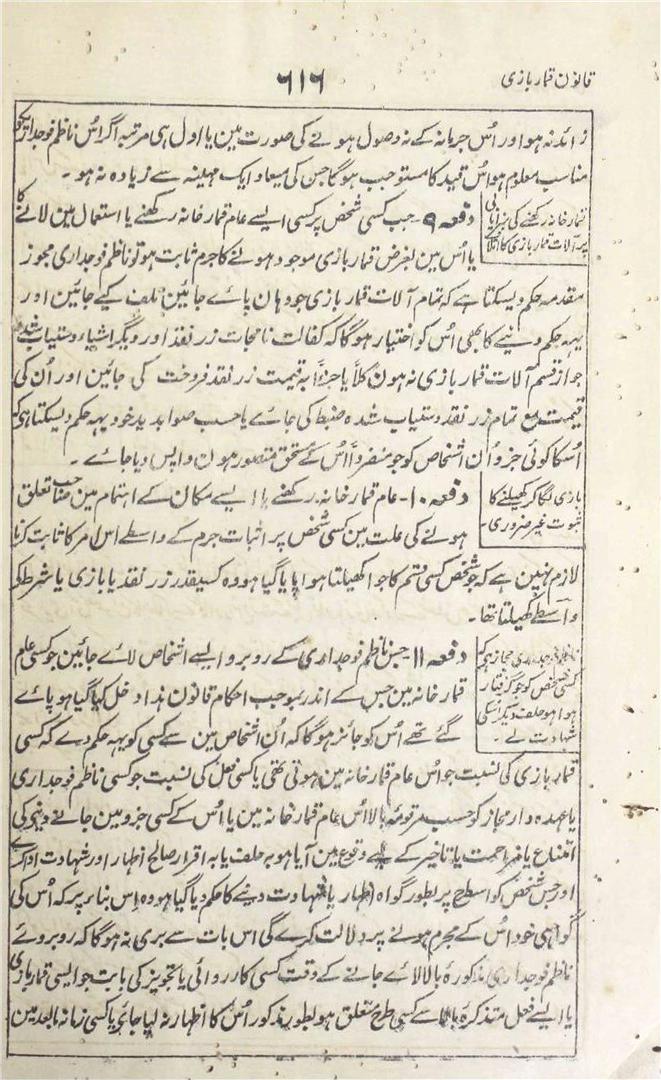 قانون قمار بازی
٦١٦
زائد نہ ہو اور اُس جرمانہ کے نہ وصول ہونے کی صورت مین یا اول ہی مرتبہ اگر اُس ناظم فوجداری کو
مناسب معلوم ہو اُس قید کا مستوجب ہوگا جس کی میعاد ایک مہینہ سے زیادہ نہ ہو۔
قمار خانہ رکھنے کی سزایابی
پر آلات قمار بازی کا اتلاف
دفعہ ۹۔ جب کسی شخص پر کسی ایسے عام قمار خانہ رکھنے یا استعمال مین لانے کا
یا اُس مین بغرض قمار بازی موجود ہونے کا جرم ثابت ہو تو ناظم فوجداری مجوز
مقدمہ حکم دیسکتا ہے کہ تمام آلات قمار بازی جو وہان پائے جائین تلف کیے جائین اور
یہہ حکم دینے کا بھی اُس کو اختیار ہوگا کہ کفالت نامجات زر نقد اور دیگر اشیاء دستیاب شدہ
جو از قسم آلات قمار بازی نہ ہون کلاً یا جزواً بہ قیمت زر نقد فروخت کی جائین اور اُن کی
قیمت مع تمام زر نقد دستیاب شدہ ضبط کی جائے یا حسب صوابدید خود یہہ حکم دیسکتا ہی کہ
اُسکا کوئی جزو اُن اشخاص کو جو منفرداً اُس کے مستحق متصور ہون واپس دیا جائے۔
بازی لگا کر کھیلنے کا
ثبوت غیر ضروری۔
دفعہ ۱۰۔ عام قمار خانہ رکھنے یا ایسے مکان کے اہتمام مین تعلق
ہونے کی علت مین کسی شخص پر اثبات جرم کے واسطے اس امر کا ثابت کرنا
لازم نہین ہے کہ جو شخص کسی قسم کا جوا کھیلتا ہوا پایا گیا ہو وہ کسیقدر زر نقد یا بازی یا شرط کے
واسطے کھیلتا تھا۔
ناظم فوجداری مجاز ہے کہ
کسی شخص کو جو گرفتار
ہوا ہو حلف دیکر اُسکی
شہادت لے۔
دفعہ ۱۱۔ جس ناظم فوجداری کے روبرو ایسے اشخاص لائے جائین جو کسی عام
قمار خانہ مین جس کے اندر بموجب احکام قانون ہذا دخل کیا گیا ہو پائے
گئے تھے اُس کو جائز ہوگا کہ اُن اشخاص مین سے کسی کو یہہ حکم دے کہ کسی
قمار بازی کی نسبت جو اُس عام قمار خانہ مین ہوتی تھی یا کسی فعل کی نسبت جو کسی ناظم فوجداری
یا عہدہ دار مجاز کو حسب مرقومہ بالا اُس عام قمار خانہ مین یا اُس کے کسی جزو مین جانے دینے کی
امتناع یا مزاحمت یا تاخیر کے لیے وقوع مین آیا ہو بہ حلف یا بہ اقرار صالح اظہار اور شہادت ادا کرے
اور جس شخص کو اسطرح پر بطور گواہ اظہار یا شہادت دینے کا حکم دیا گیا ہو وہ اِس بناء پر کہ اُس کی
گواہی خود اُس کے مجرم ہونے پر دلالت کرے گی اس بات سے بری نہ ہوگا کہ روبروئے
ناظم فوجداری مذکورۂ بالا لائے جانے کے وقت کسی کارروائی یا تجویز کی بابت جو ایسی قمار بازی
یا ایسے فعل متذکرہ بالا سے کسی طرح متعلق ہو بطور مذکور اُس کا اظہار نہ لیا جائے یا کسی زمانہ مابعد مین